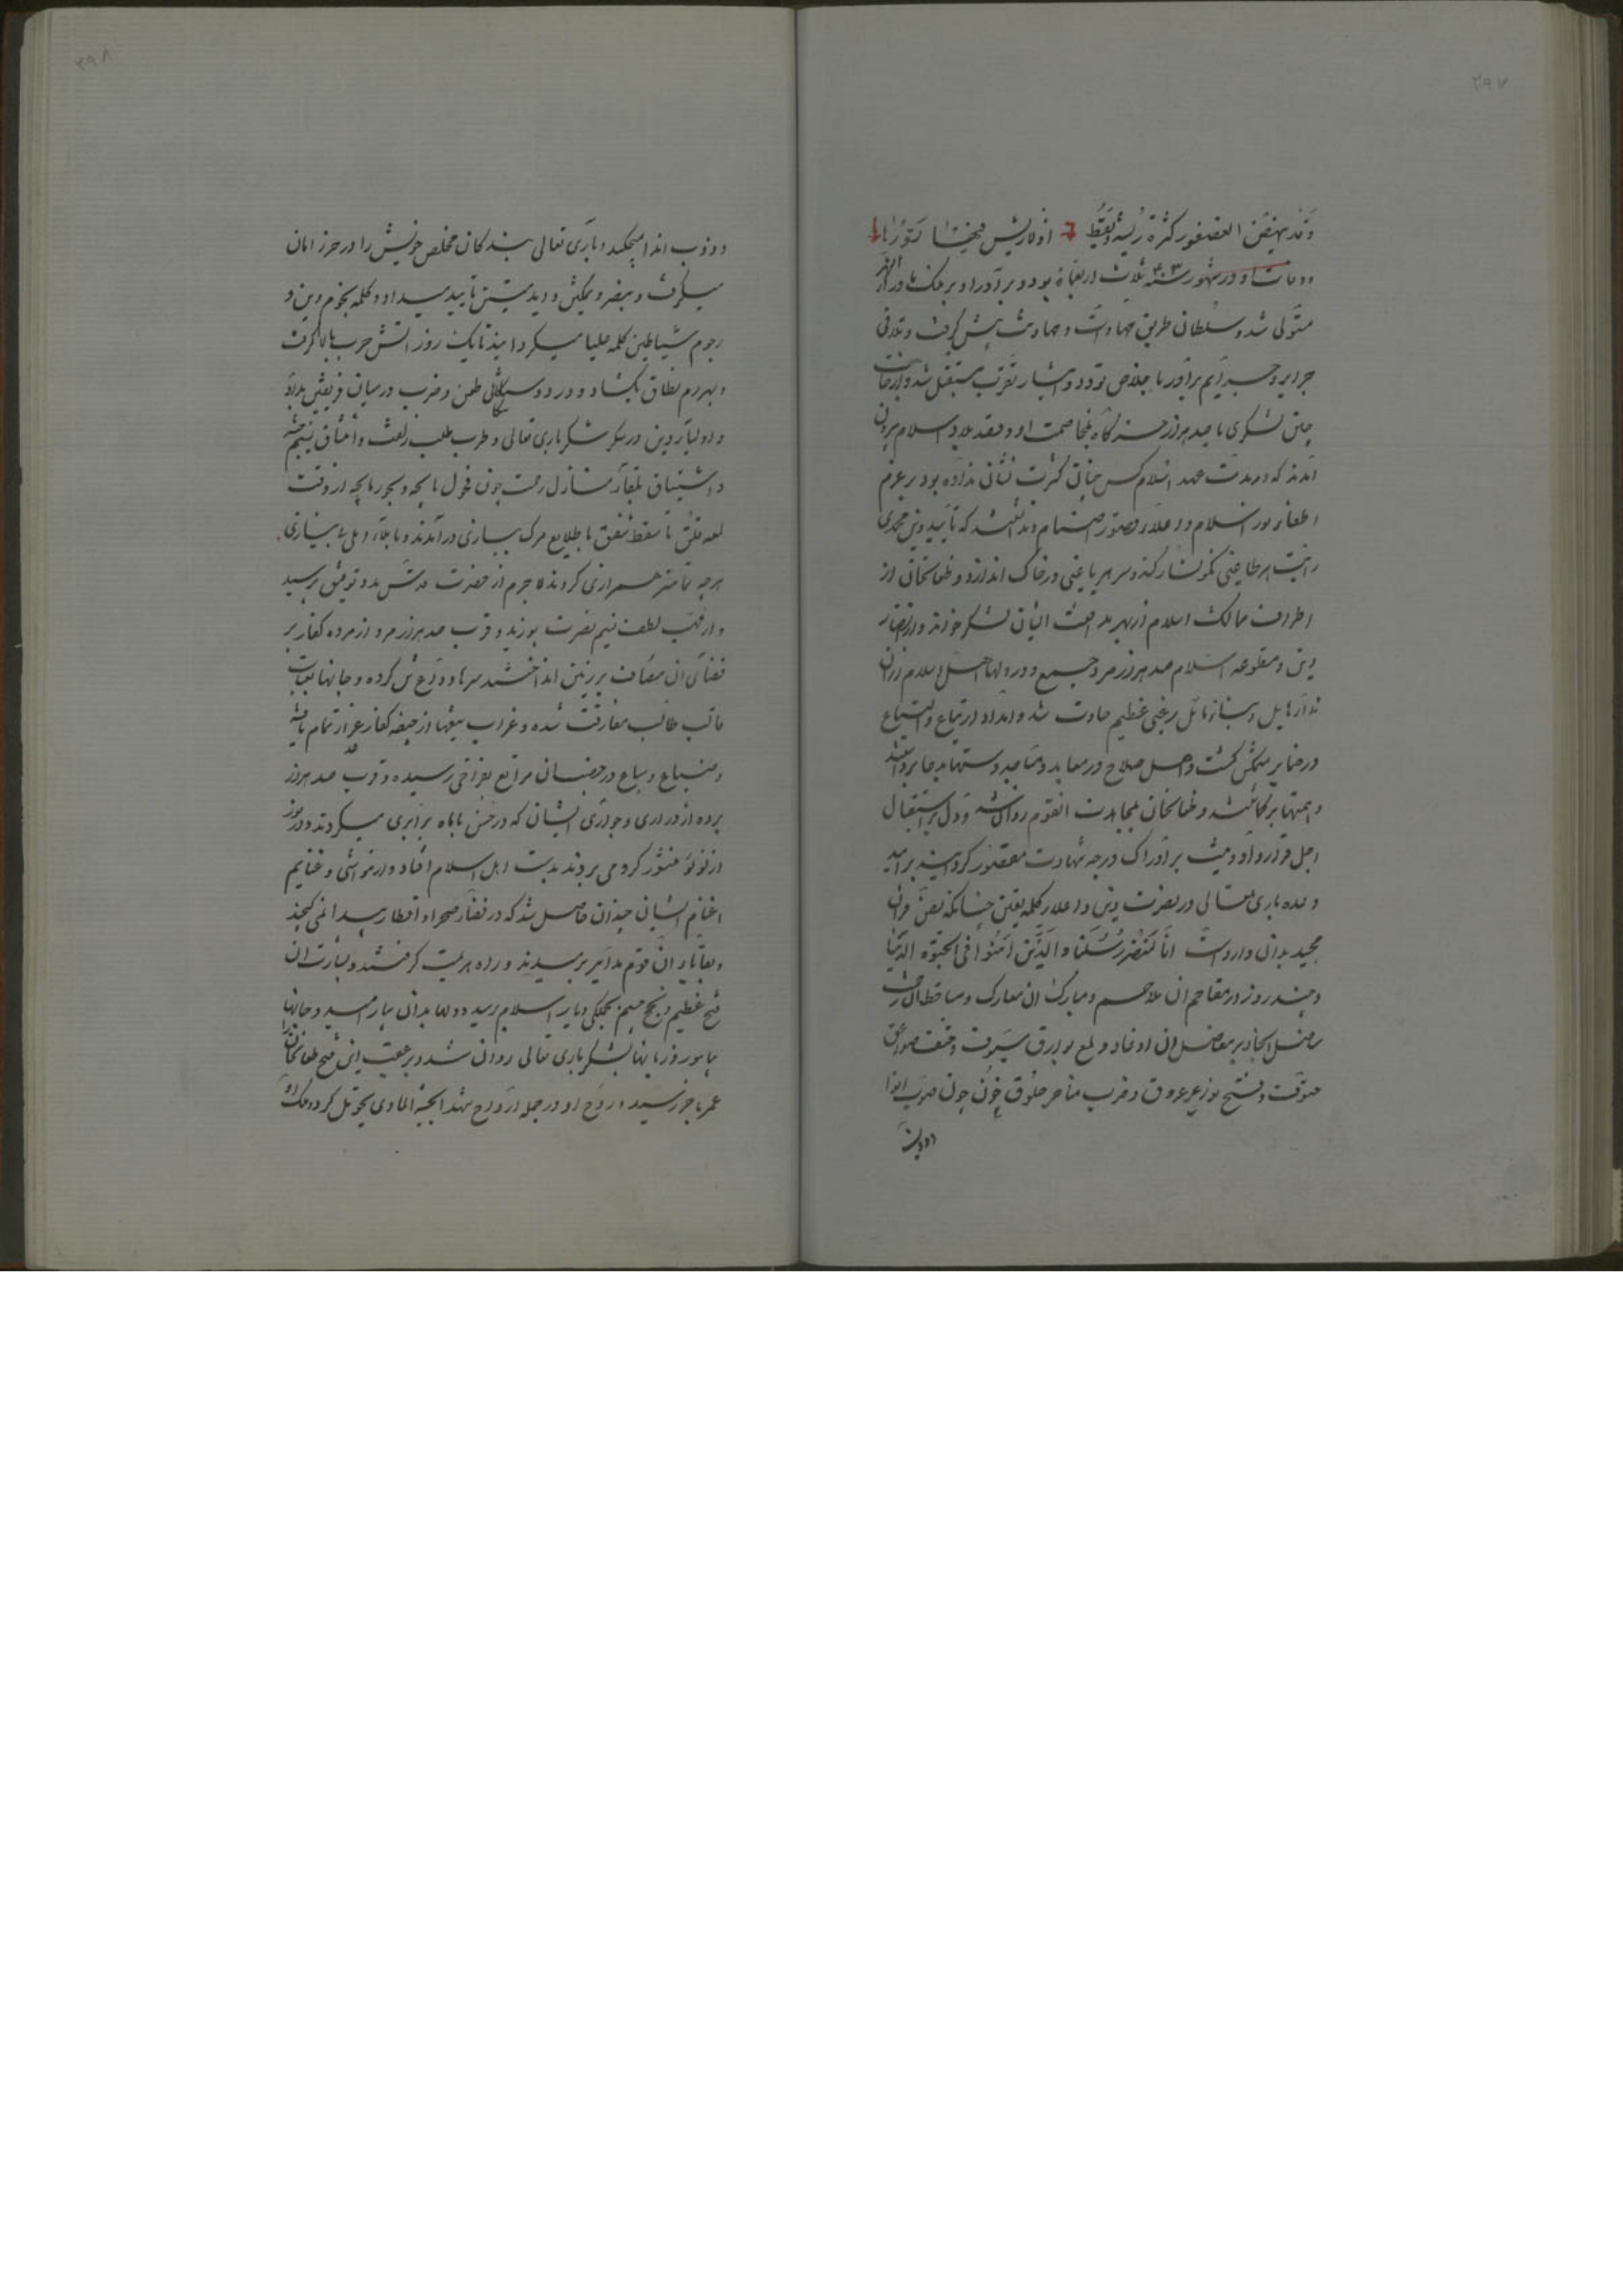 ۲۹۷
وقد ینهض العصفور کثرة ریشه ویسقط اولاریش فیها
وفات او در شهور سنه ۴۰۳ ثلاث اربعمأة بود و برادر او بر ملک ماوراء النهر
متولی شد و سلطان طریق مهادات و مهادنت پیش گرفت و تلافی
جرایر و جرایم برادر باخلاص تودد و ایثار تقرب مستقبل شد و از جانب
چین لشکری با صد هزار خرگاه بمخاصمت او و قصد بلاد اسلام بیرون
آمدند که در مدت عهد اسلام کس چنان کثرت نشان نداده بود بر عزم
اطفاء نور اسلام و اعلاء اصنام و ندانستند که تأیید دین محمدی
رایت هر طاغی نگونسار کند و سر هر یاغی در خاک اندازد و طغانخان از
اطراف ممالک اسلام از بهر مدافعت ایشان لشکر خواند و از انصار
دین و مطوعه اسلام صد هزار مرد جمع و در دلها اهل اسلام از آن
هایل و نازل رعبی عظیم حادث شد و امداد ارتیاع و التیاع
در ضمایر متمکن گشت و اهل صلاح در معابد و مساجد دستها بدعا برداشتند
و همتها برگماشتند و طغانخان بمجاهدت آن قوم روان شد و دل بر استقبال
اجل قرار داد و نیت بر ادراک درجه شهادت مقصور گردانید بر امید
وعده باری تعالی در نصرت دین و اعلاء کلمه یقین چنانکه نص قرآن
مجید بدان وارد است انا لننصر رسلنا والذین آمنوا فی الحیوة الدنیا
و چند روز در مقاحم آن ملاحم و مبارک آن معارک
مفاصل و لمع بوارق سیوف صواعق
حتوف توزیع عروق و ضرب مناخر حلوق خون چون صوب انوا
و ذوب
۲۹۸
و ذوب اندا میچکید و باری تعالی بندگان مخلص خویش را در حرز امان
میگرفت و بنصر و تمکین و اید متین تایید میداد و کلمه نجوم دین و
رجوم شیاطین کلمه علیا میگردانید تا یک روز آتش حرب بالا گرفت
و بهرام نطاق بگشاد و در دوستکانی طعن و ضرب در میان فریقین بداد
و اولیاء دین در سکر شکر باری تعالی و طرب طلب زلفت و
و اشتیاق بلقاء منازل رحمت چون فحول هایجه و بحور مایجه از وقت
لمعه فلق تا سقط شفق با طلایع مرگ ببازی درآمدند
هرچه تمامتر همرازی کردند لاجرم از حضرت قدس مدد توفیق برسید
و از مهب لطف نسیم نصرت بوزید و قرب صد هزار مرد از مرده کفار بر
فضای آن مصاف بر زمین انداختند سرها وداع تن کرده و جانها
قالب طالب مفارقت شده و غراب تیغها از بیضه کفار غرار تمام یافته
و ضباع و سباع در مراتع بفراخی رسیده و قرب صد هزار
برده از ذراری و جواری ایشان که در حسن با ماه برابری میکردند و در نور
از لؤلؤ منثور گرو می بردند بدست اهل اسلام افتاد و از مواشی و غنایم
اغنام ایشان چندان حاصل شد که در فضاء صحرا و اقطار بیدا نمی گنجید
و بقایاء آن قوم راه هزیمت گرفتند و بشارت آن
فتح عظیم و نجح جسیم بجملگی دیار اسلام رسید و دلها بدان بیارامید و جانها
بیاسود و زبانها بشکر باری تعالی روان شد و بر عقب این فتح طغانخان را
عمر باخر رسید و روح او در جمله ارواح شهدا بجنة الماوی تحویل کرد و ملک او